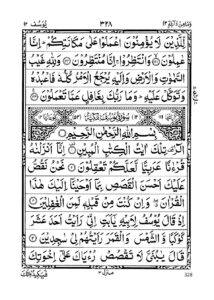 يُوسُف ١٢ ٣٢٨ وَمَا مِنْ دَآبَّةٍ ١٢
لِّلَّذِيْنَ لَا يُؤْمِنُوْنَ اعْمَلُوْا عَلٰى مَكَانَتِكُمْ اِنَّا
عٰمِلُوْنَ وَانْتَظِرُوْا اِنَّا مُنْتَظِرُوْنَ وَلِلّٰهِ غَيْبُ
السَّمٰوٰتِ وَالْاَرْضِ وَاِلَيْهِ يُرْجَعُ الْاَمْرُ كُلُّهٗ فَاعْبُدْهُ
وَتَوَكَّلْ عَلَيْهِ وَمَا رَبُّكَ بِغَافِلٍ عَمَّا تَعْمَلُوْنَ
بِسْمِ اللّٰهِ الرَّحْمٰنِ الرَّحِيْمِ
الٓرٰ تِلْكَ اٰيٰتُ الْكِتٰبِ الْمُبِيْنِ اِنَّآ اَنْزَلْنٰهُ
قُرْءٰنًا عَرَبِيًّا لَّعَلَّكُمْ تَعْقِلُوْنَ نَحْنُ نَقُصُّ
عَلَيْكَ اَحْسَنَ الْقَصَصِ بِمَآ اَوْحَيْنَآ اِلَيْكَ هٰذَا
الْقُرْاٰنَ وَاِنْ كُنْتَ مِنْ قَبْلِهٖ لَمِنَ الْغٰفِلِيْنَ
اِذْ قَالَ يُوْسُفُ لِاَبِيْهِ يٰٓاَبَتِ اِنِّيْ رَاَيْتُ اَحَدَ عَشَرَ
كَوْكَبًا وَّالشَّمْسَ وَالْقَمَرَ رَاَيْتُهُمْ لِيْ سٰجِدِيْنَ
قَالَ يٰبُنَيَّ لَا تَقْصُصْ رُءْيَاكَ عَلٰٓى اِخْوَتِكَ
328